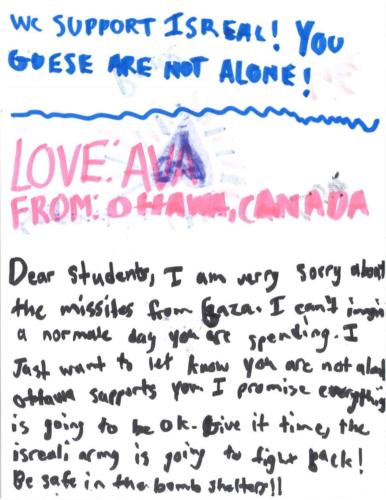 WC SUPPORT ISREAL! YOU
GUESE ARE NOT ALONE!
LOVE: AVA
FROM: OTTAWA, CANADA
Dear students, I am verry sorry about
the missiles from Gaza. I can't imgin
a normale day you are spending. I
Just want to let know you are not alone
ottawa supports you I promise everything
is going to be ok. Give it time, the
isreali army is going to fight back!
Be safe in the bomb shelters!!